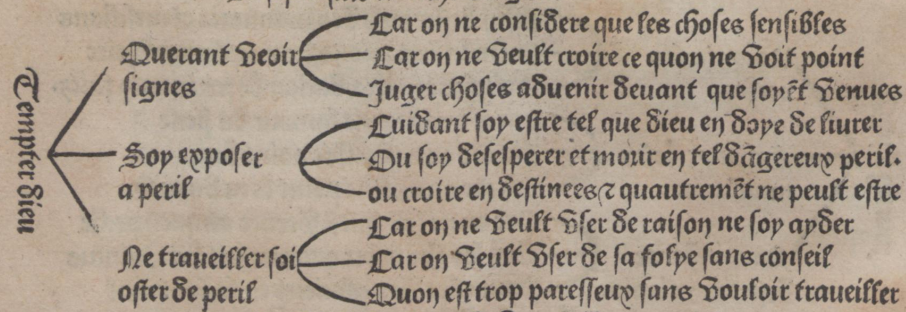 Tempter dieu
Querant veoir
signes
Car on ne considere que les choses sensibles
Car on ne veult croire ce quon ne voit point
Juger choses aduenir devant que soyẽt venues
Soy exposer
a peril
Cuidant soy estre tel que dieu en doye deliurer
Ou soy desesperer et morir en tel dãgereux peril.
ou croire en destinees ⁊ quautremẽt ne peult estre
Ne traueiller soi
oster de peril
Car on ne veult vser de raison ne soy ayder
Car on veult vser de sa folye sans conseil
Quon est trop paresseux sans vouloir traueiller